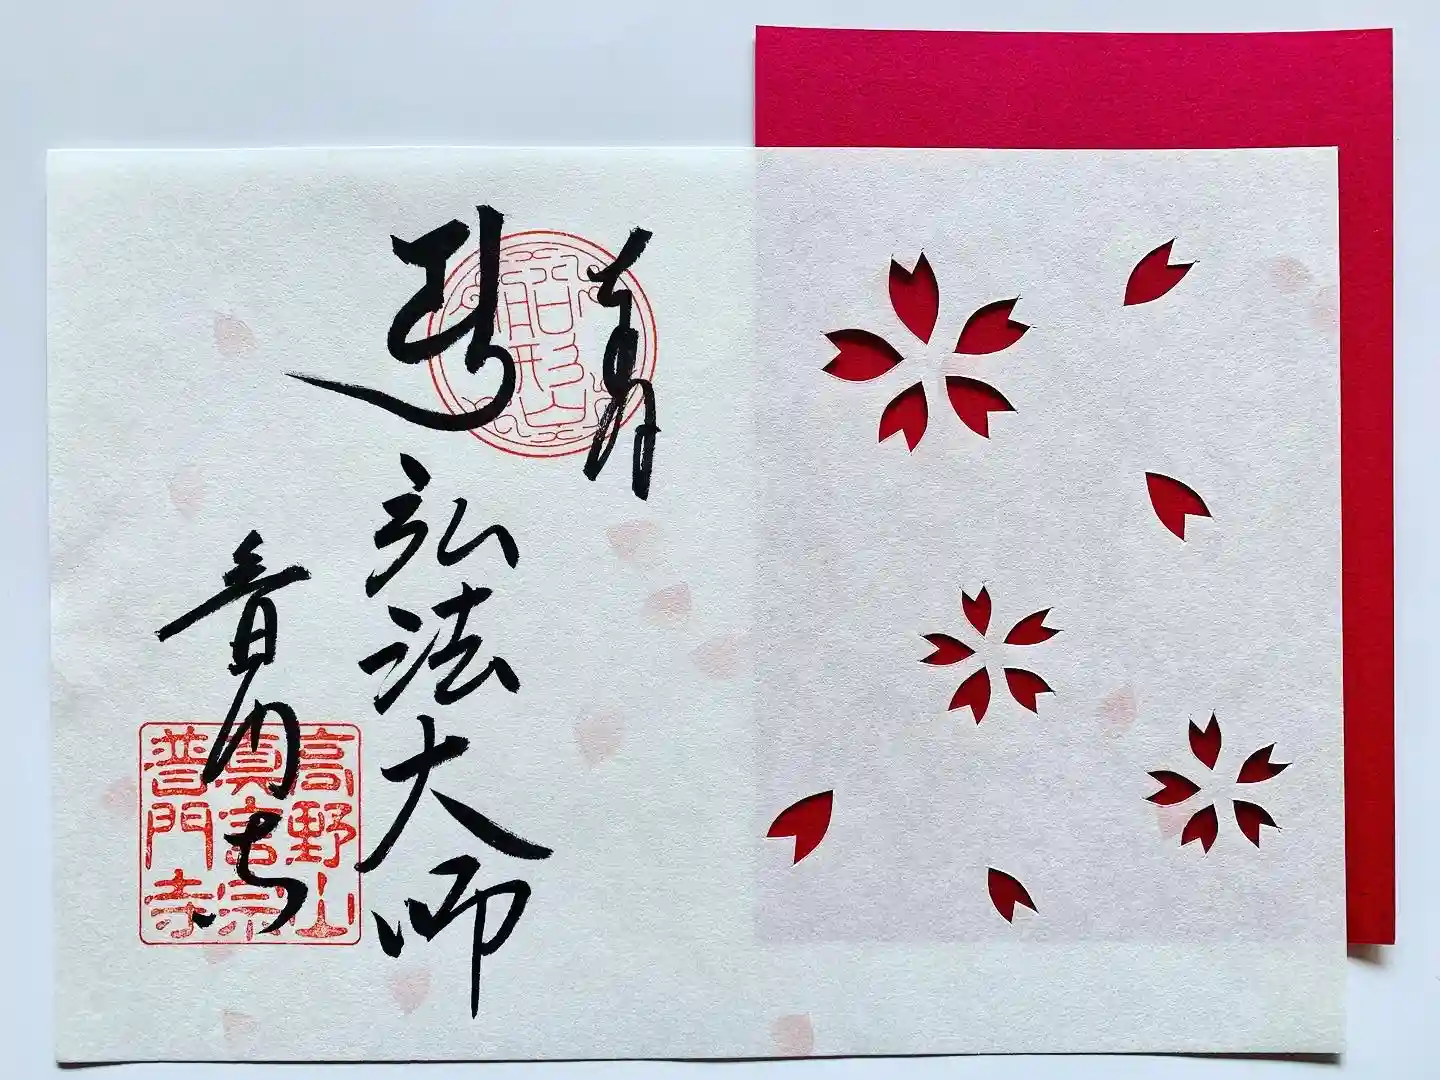 弘法大師
普門寺
高野山
真言宗
普門寺